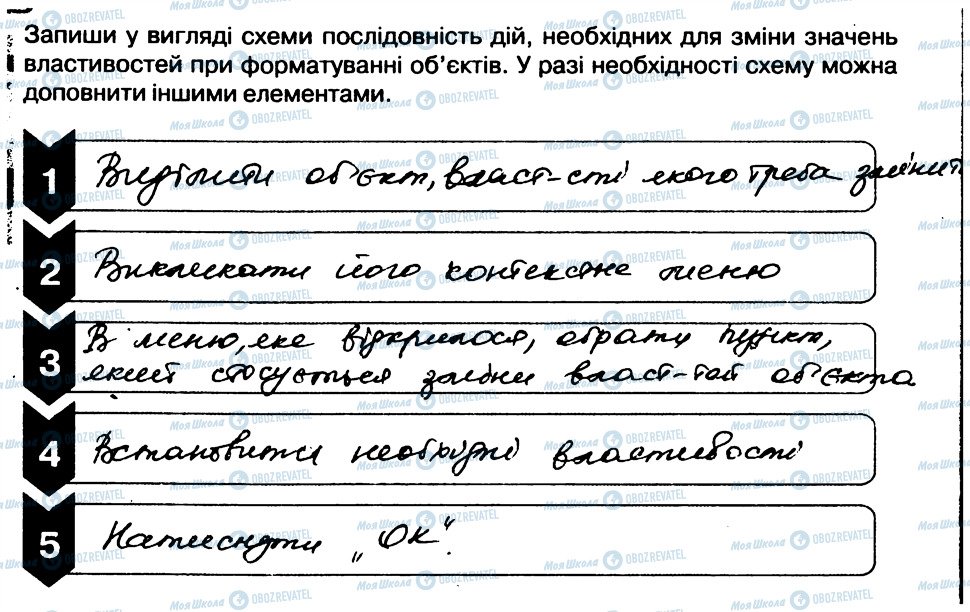 Запиши у вигляді схеми послідовність дій, необхідних для зміни значень
властивостей при форматуванні об'єктів. У разі необхідності схему можна
доповнити іншими елементами.
1 Виділити об'єкт, власт-сті якого треба змінит
2 Викликати його контекстне меню
3 В меню, яке відкрилося, обрати пункт,
який стосується зміни власт-тей об'єкта
4 Встановити необхідні властивості
5 Натиснути „ОК".
Моя Школа OBOZREVATEL